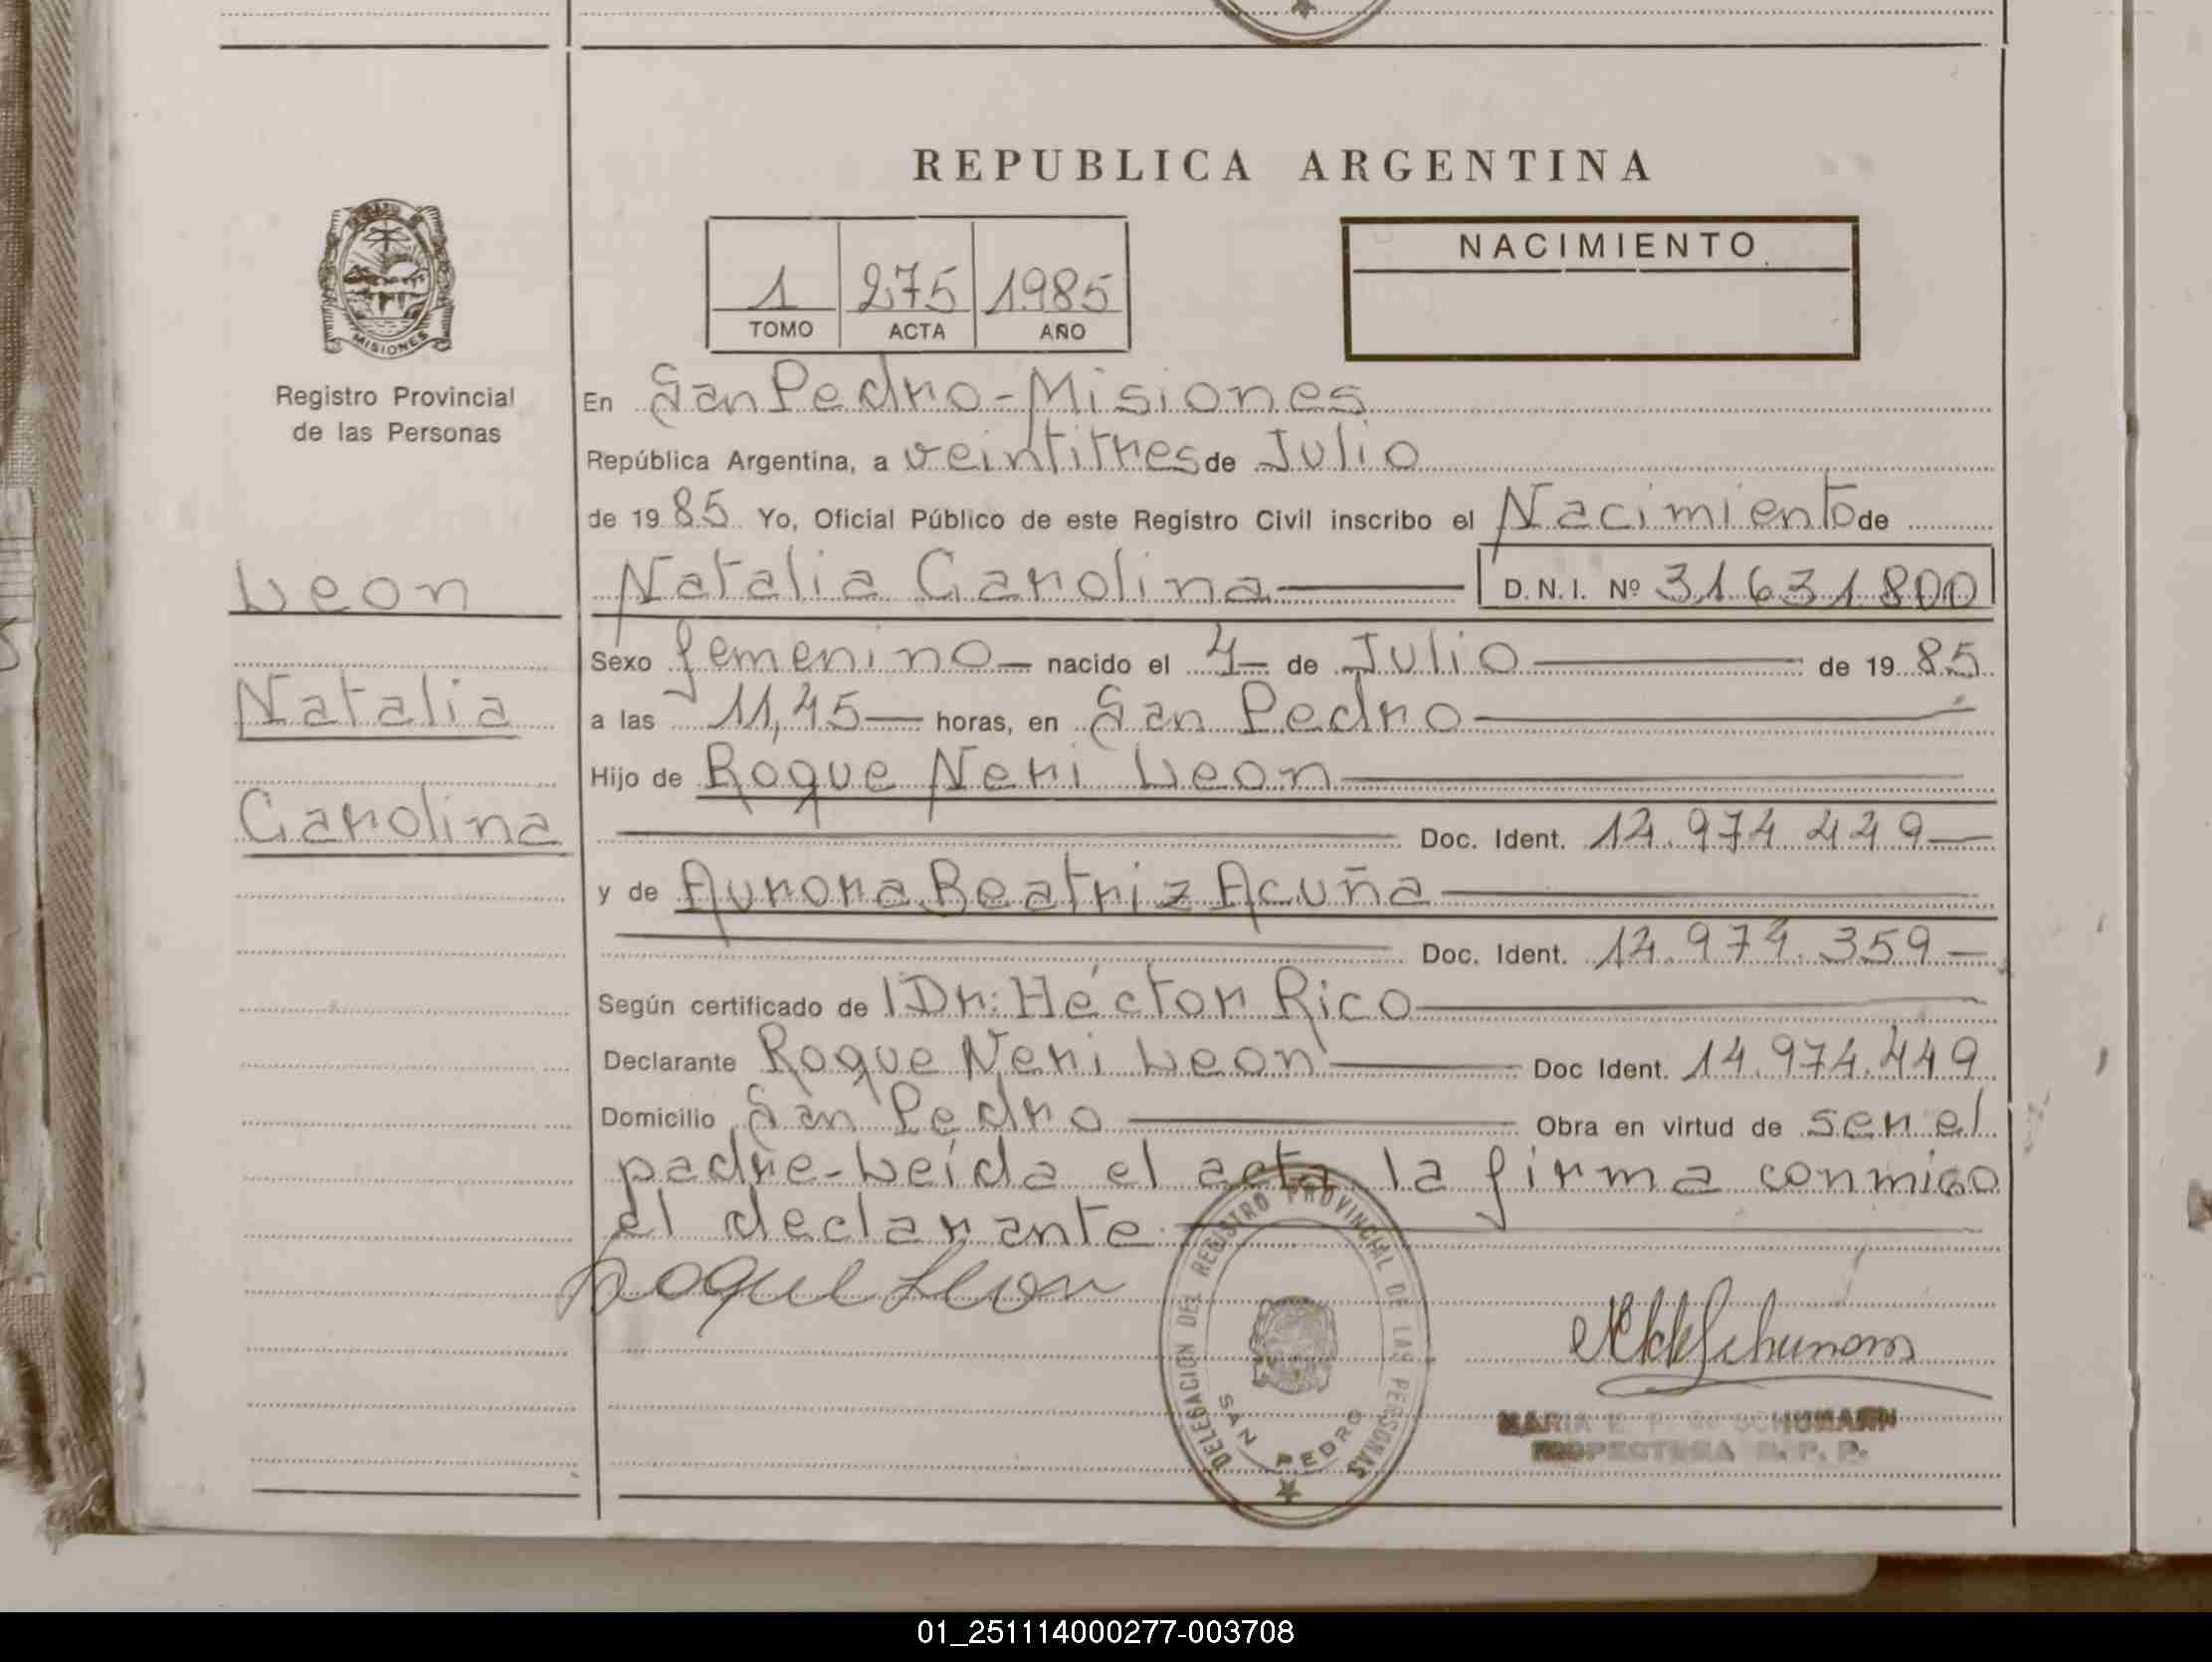 REPUBLICA ARGENTINA
NACIMIENTO
1 275 1985
TOMO ACTA AÑO
MISIONES
Registro Provincial
de las Personas
Leon
Natalia
Carolina
En San Pedro-Misiones
República Argentina, a veintitres de Julio
de 19 85 Yo, Oficial Público de este Registro Civil inscribo el Nacimiento de
Natalia Carolina D.N.I. Nº 31631800
Sexo femenino nacido el 4 de Julio de 19 85
a las 11,45 horas, en San Pedro
Hijo de Roque Neri Leon
Doc. Ident. 14.974.449
y de Aurora Beatriz Acuña
Doc. Ident. 14.974.359
Según certificado de Dr: Héctor Rico
Declarante Roque Neri Leon Doc Ident. 14.974.449
Domicilio San Pedro Obra en virtud de ser el
padre-Leída el acta la firma conmigo
el declarante
Roque Leon
DELEGACION DEL REGISTRO PROVINCIAL DE LAS PERSONAS
SAN PEDRO
MARIA SCHUMANN
R. P. P.
01_251114000277-003708